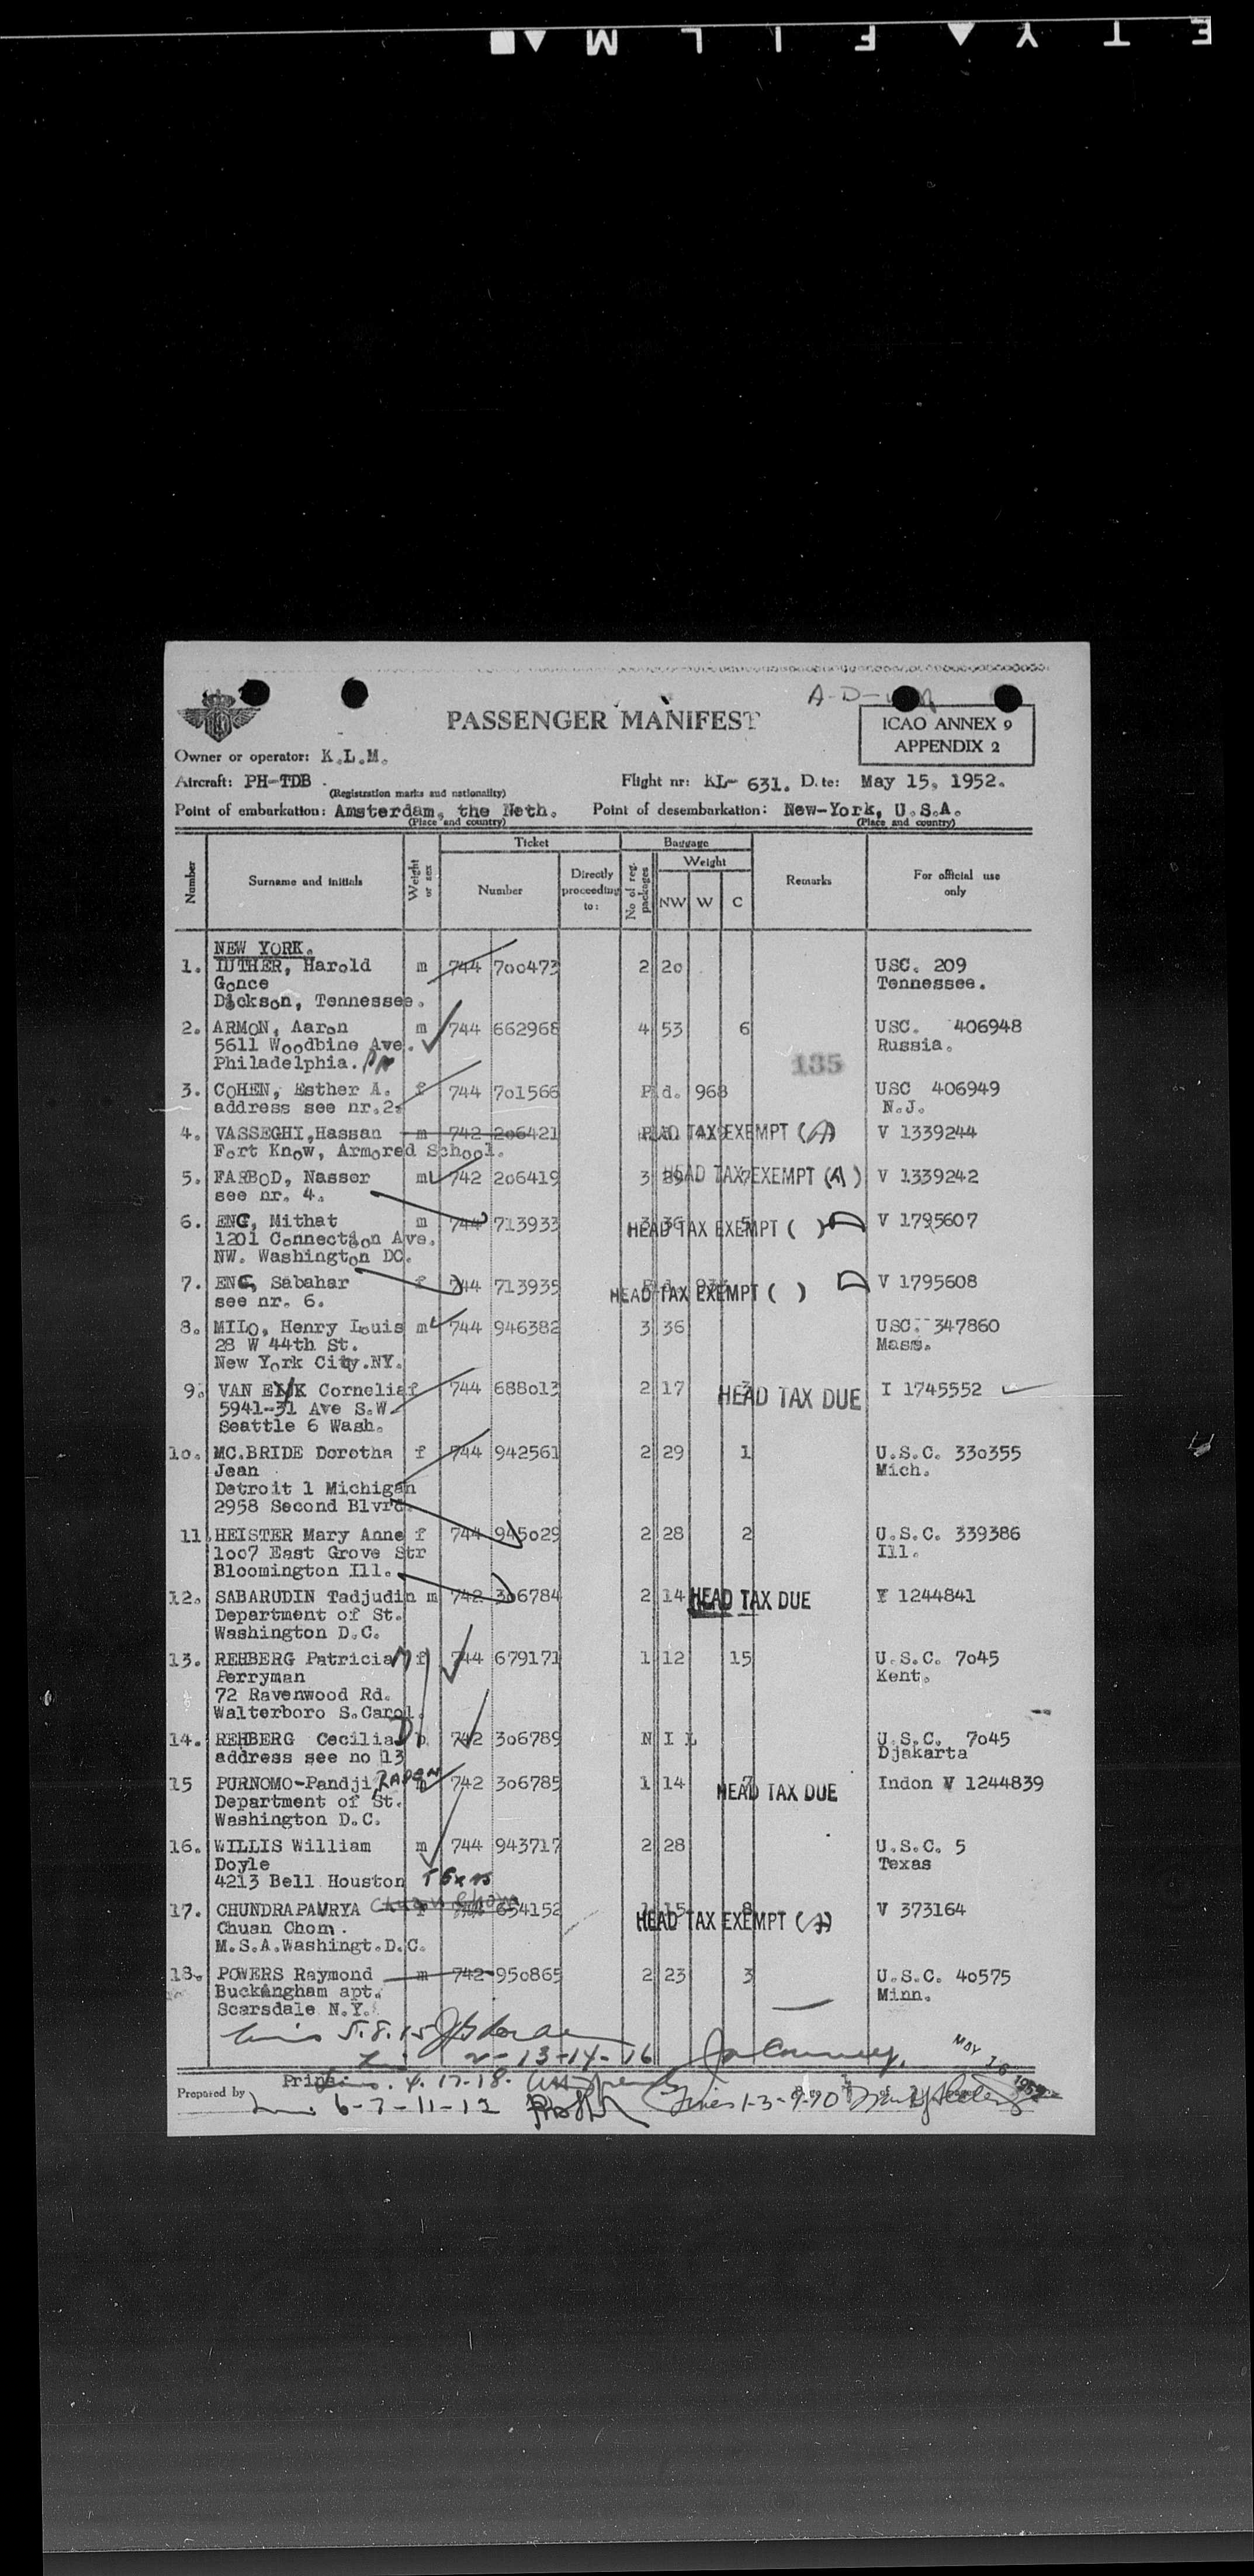 E T Y ▲ F I L M ▲ ■
A-D-
PASSENGER MANIFEST
ICAO ANNEX 9
APPENDIX 2
Owner or operator: K.L.M.
Aircraft: PH-TDB . Flight nr: KL- 631. D.te: May 15, 1952.
(Registration marks and nationality)
Point of embarkation: Amsterdam, the Neth. Point of desembarkation: New-York, U.S.A.
(Place and country) (Place and country)
Number Surname and initials Weight or sex Ticket Number Directly proceeding to: Baggage No of reg. packages Weight NW W C Remarks For official use only
NEW YORK.
1. LUTHER, Harold m 744 700473 2 20 USC. 209
Gonce Tennessee.
Dickson, Tennessee.
2. ARMON, Aaron m 744 662968 4 53 6 USC. 406948
5611 Woodbine Ave. Russia.
Philadelphia. PA
135
3. COHEN, Esther A. f 744 701566 P.d. 968 USC 406949
address see nr.2. N.J.
4. VASSEGHI,Hassan m 742 206421 HEAD TAX EXEMPT (A) V 1339244
Fort Know, Armored School.
5. FARBOD, Nasser m 742 206419 3 29 7 HEAD TAX EXEMPT (A) V 1339242
see nr. 4.
6. ENC, Mithat m 744 713933 3 36 5 HEAD TAX EXEMPT ( ) D V 1795607
1201 Connection Ave.
NW. Washington DC.
7. ENC, Sabahar f 744 713935 HEAD TAX EXEMPT ( ) D V 1795608
see nr. 6.
8. MILO, Henry Louis m 744 946382 3 36 USC. 347860
28 W 44th St. Mass.
New York City.NY.
9. VAN EYK Cornelia f 744 688013 2 17 3 HEAD TAX DUE I 1745552
5941-31 Ave S.W.
Seattle 6 Wash.
10. MC.BRIDE Dorotha f 744 942561 2 29 1 U.S.C. 330355
Jean Mich.
Detroit 1 Michigan
2958 Second Blvrd.
11. HEISTER Mary Anne f 744 945029 2 28 2 U.S.C. 339386
1007 East Grove Str Ill.
Bloomington Ill.
12. SABARUDIN Tadjudin m 742 306784 2 14 HEAD TAX DUE V 1244841
Department of St.
Washington D.C.
13. REHBERG Patricia f 744 679171 1 12 15 U.S.C. 7045
Perryman Kent.
72 Ravenwood Rd.
Walterboro S.Carol.
14. REHBERG Cecilia D 742 306789 N I L U.S.C. 7045
address see no 13 Djakarta
15 PURNOMO-Pandji, RADEN 742 306785 1 14 7 HEAD TAX DUE Indon V 1244839
Department of St.
Washington D.C.
16. WILLIS William m 744 943717 2 28 U.S.C. 5
Doyle Texas
4213 Bell Houston Texas
17. CHUNDRAPAVRYA Chuan Chom f 654152 1 15 8 HEAD TAX EXEMPT (A) V 373164
Chuan Chom.
M.S.A.Washingt.D.C.
18. POWERS Raymond m 742 950865 2 23 3 U.S.C. 40575
Buckingham apt. Minn.
Scarsdale N.Y.
5.8.15
2-13-14-16
MAY 16 1952
Prins. 4.17-18.
Prepared by 6-7-11-12 1-3-9-10